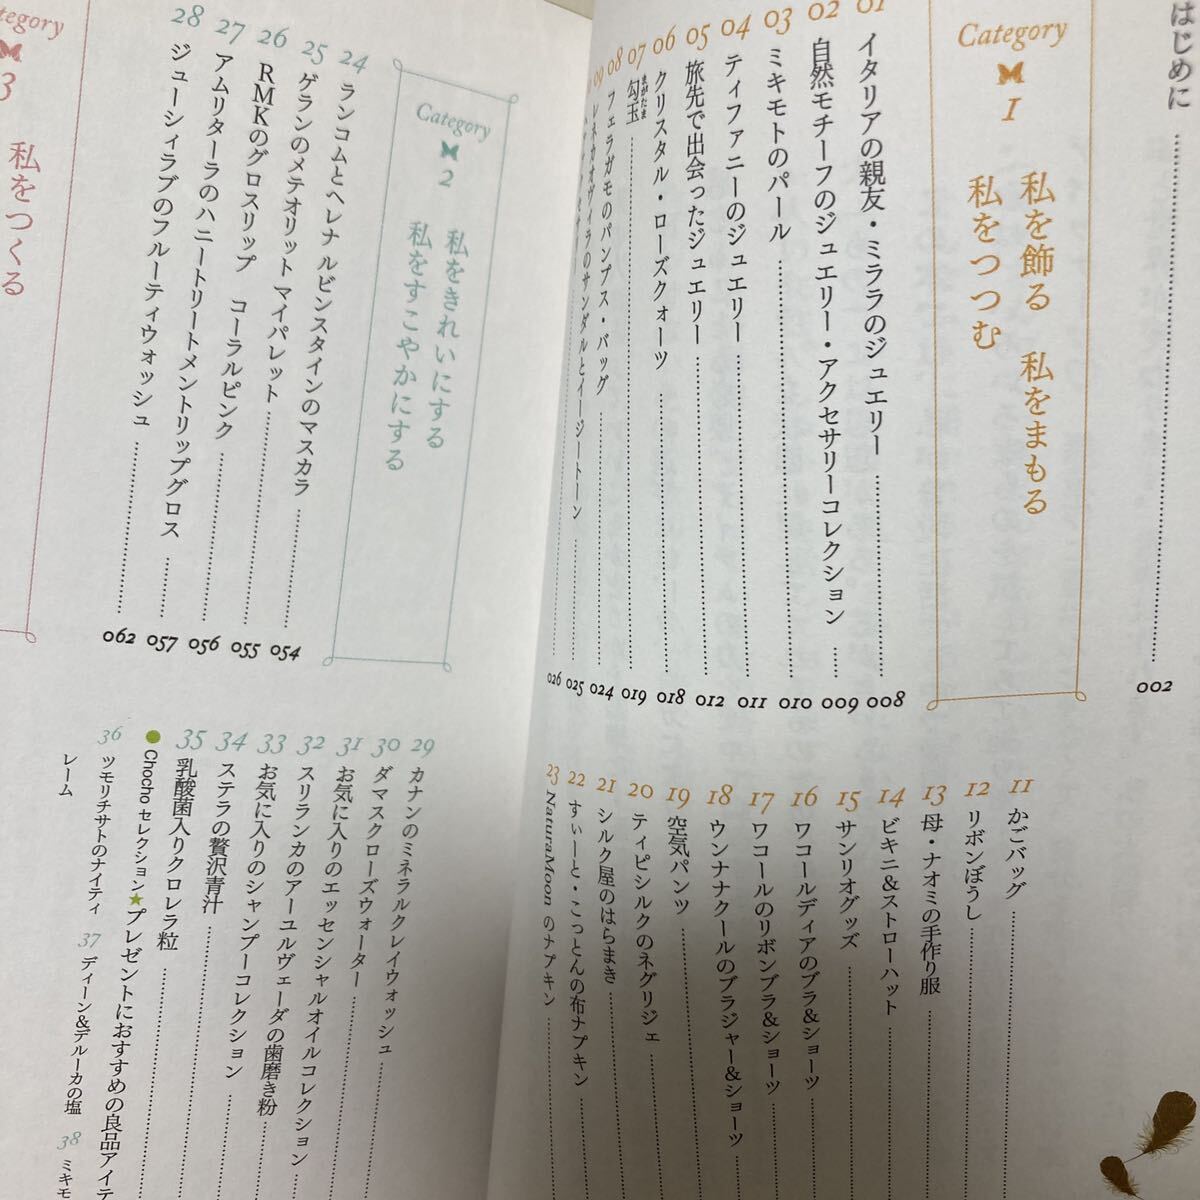 はじめに 002
Category
1
私を飾る 私をまもる
私をつつむ
01 イタリアの親友・ミララのジュエリー 008
02 自然モチーフのジュエリー・アクセサリーコレクション 009
03 ミキモトのパール 010
04 ティファニーのジュエリー 011
05 旅先で出会ったジュエリー 012
06 クリスタル・ローズクォーツ 018
07 勾玉 019
まがたま
08 フェラガモのパンプス・バッグ 024
09 レネカオヴィラのサンダルとイージートーン 025
026
11 かごバッグ
12 リボンぼうし
13 母・ナオミの手作り服
14 ビキニ&ストローハット
15 サンリオグッズ
16 ワコールディアのブラ&ショーツ
17 ワコールのリボンブラ&ショーツ
18 ウンナナクールのブラジャー&ショーツ
19 空気パンツ
20 ティピシルクのネグリジェ
21 シルク屋のはらまき
22 すぃーと・こっとんの布ナプキン
23 NaturaMoonのナプキン
Category
2
私をきれいにする
私をすこやかにする
24 ランコムとヘレナ ルビンスタインのマスカラ 054
25 ゲランのメテオリット マイパレット 055
26 RMKのグロスリップ コーラルピンク 056
27 アムリターラのハニートリートメントリップグロス 057
28 ジューシィラブのフルーティウォッシュ 062
29 カナンのミネラルクレイウォッシュ
30 ダマスクローズウォーター
31 お気に入りのエッセンシャルオイルコレクション
32 スリランカのアーユルヴェーダの歯磨き粉
33 お気に入りのシャンプーコレクション
34 ステラの贅沢青汁
35 乳酸菌入りクロレラ粒
Chocho セレクション★プレゼントにおすすめの良品アイテ
36 ツモリチサトのナイティ 37 ディーン&デルーカの塩 38 ミキモ
レーム
tegory
3
私をつくる